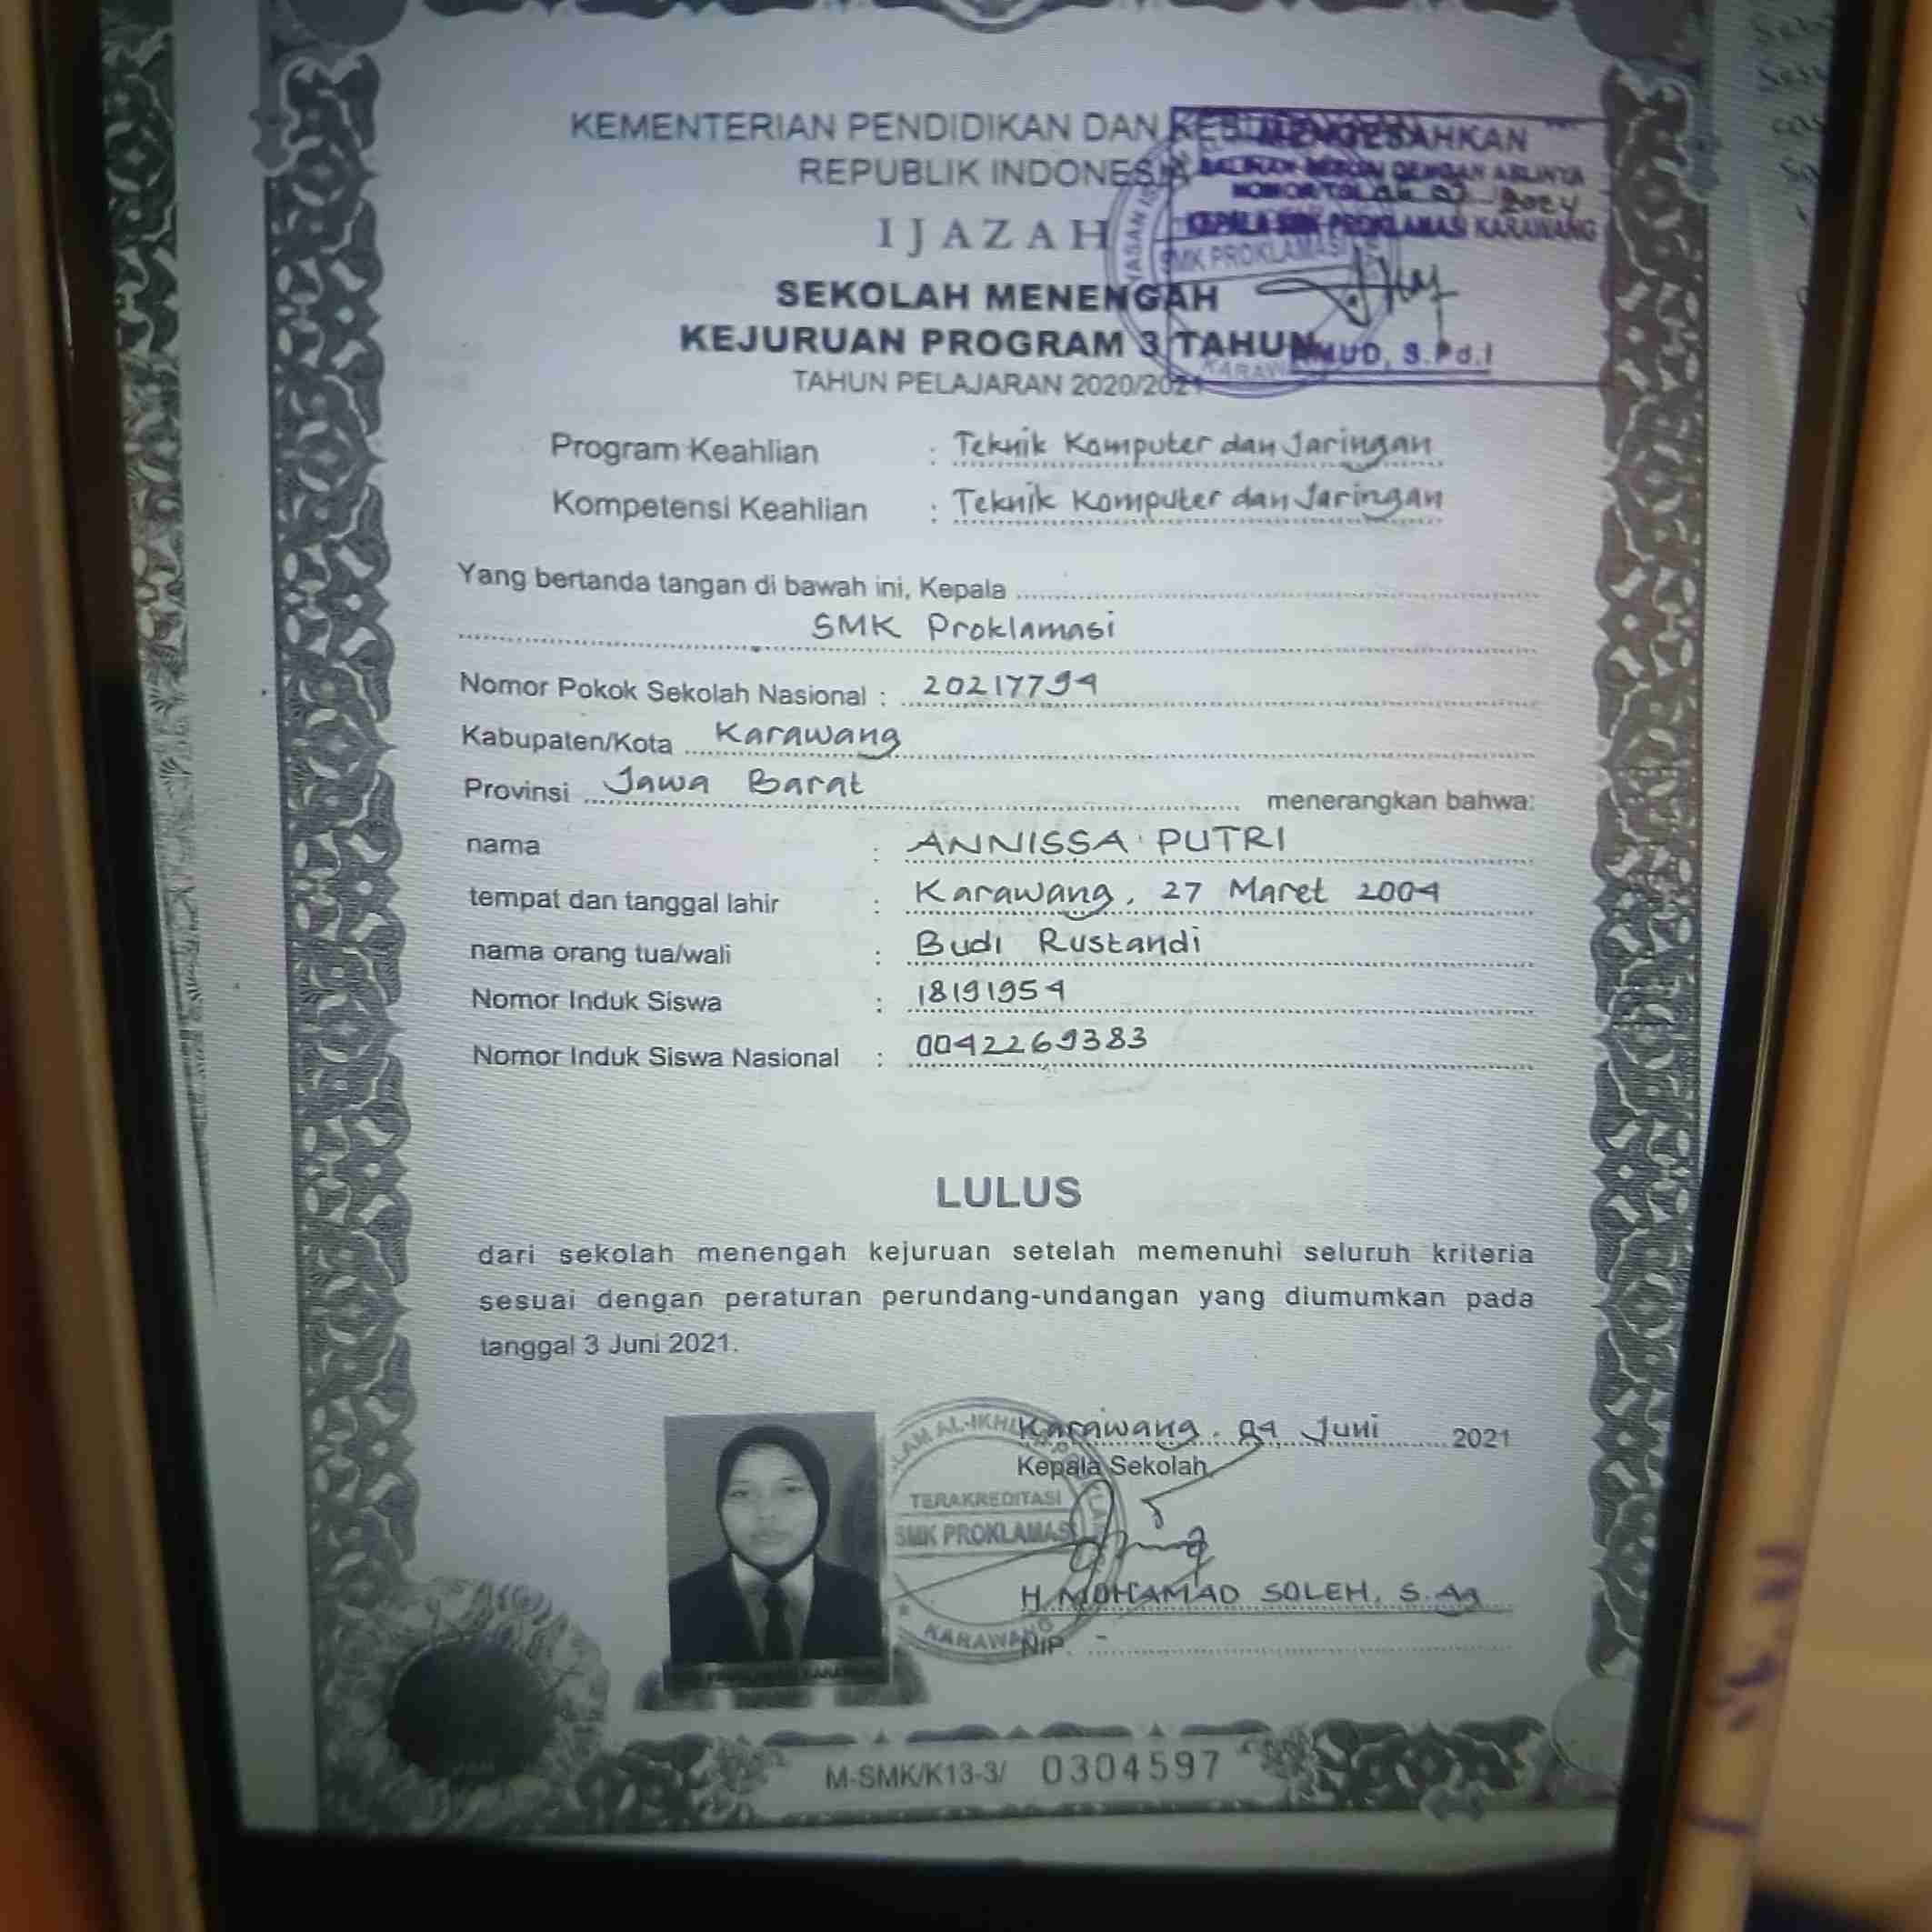 KEMENTERIAN PENDIDIKAN DAN
REPUBLIK INDONESIA
IJAZAH
SEKOLAH MENENGAH
KEJURUAN PROGRAM 3 TAHUN
TAHUN PELAJARAN 2020/2021
MENGESAHKAN
SALINAN DENGAN ASLINYA
NOMOR/TGL
KEPALA SMK PROKLAMASI KARAWANG
SMK PROKLAMASI
MUD, S.Pd.I
Program Keahlian : Teknik Komputer dan Jaringan
Kompetensi Keahlian : Teknik Komputer dan Jaringan
Yang bertanda tangan di bawah ini, Kepala
SMK Proklamasi
Nomor Pokok Sekolah Nasional : 20217794
Kabupaten/Kota Karawang
Provinsi Jawa Barat menerangkan bahwa:
nama : ANNISSA PUTRI
tempat dan tanggal lahir : Karawang, 27 Maret 2004
nama orang tua/wali : Budi Rustandi
Nomor Induk Siswa : 18191954
Nomor Induk Siswa Nasional : 0042269383
LULUS
dari sekolah menengah kejuruan setelah memenuhi seluruh kriteria
sesuai dengan peraturan perundang-undangan yang diumumkan pada
tanggal 3 Juni 2021.
Karawang, 04 Juni 2021
Kepala Sekolah
TERAKREDITASI
SMK PROKLAMASI
KARAWANG
H. MOHAMAD SOLEH, S.Ag
NIP. -
M-SMK/K13-3/ 0304597